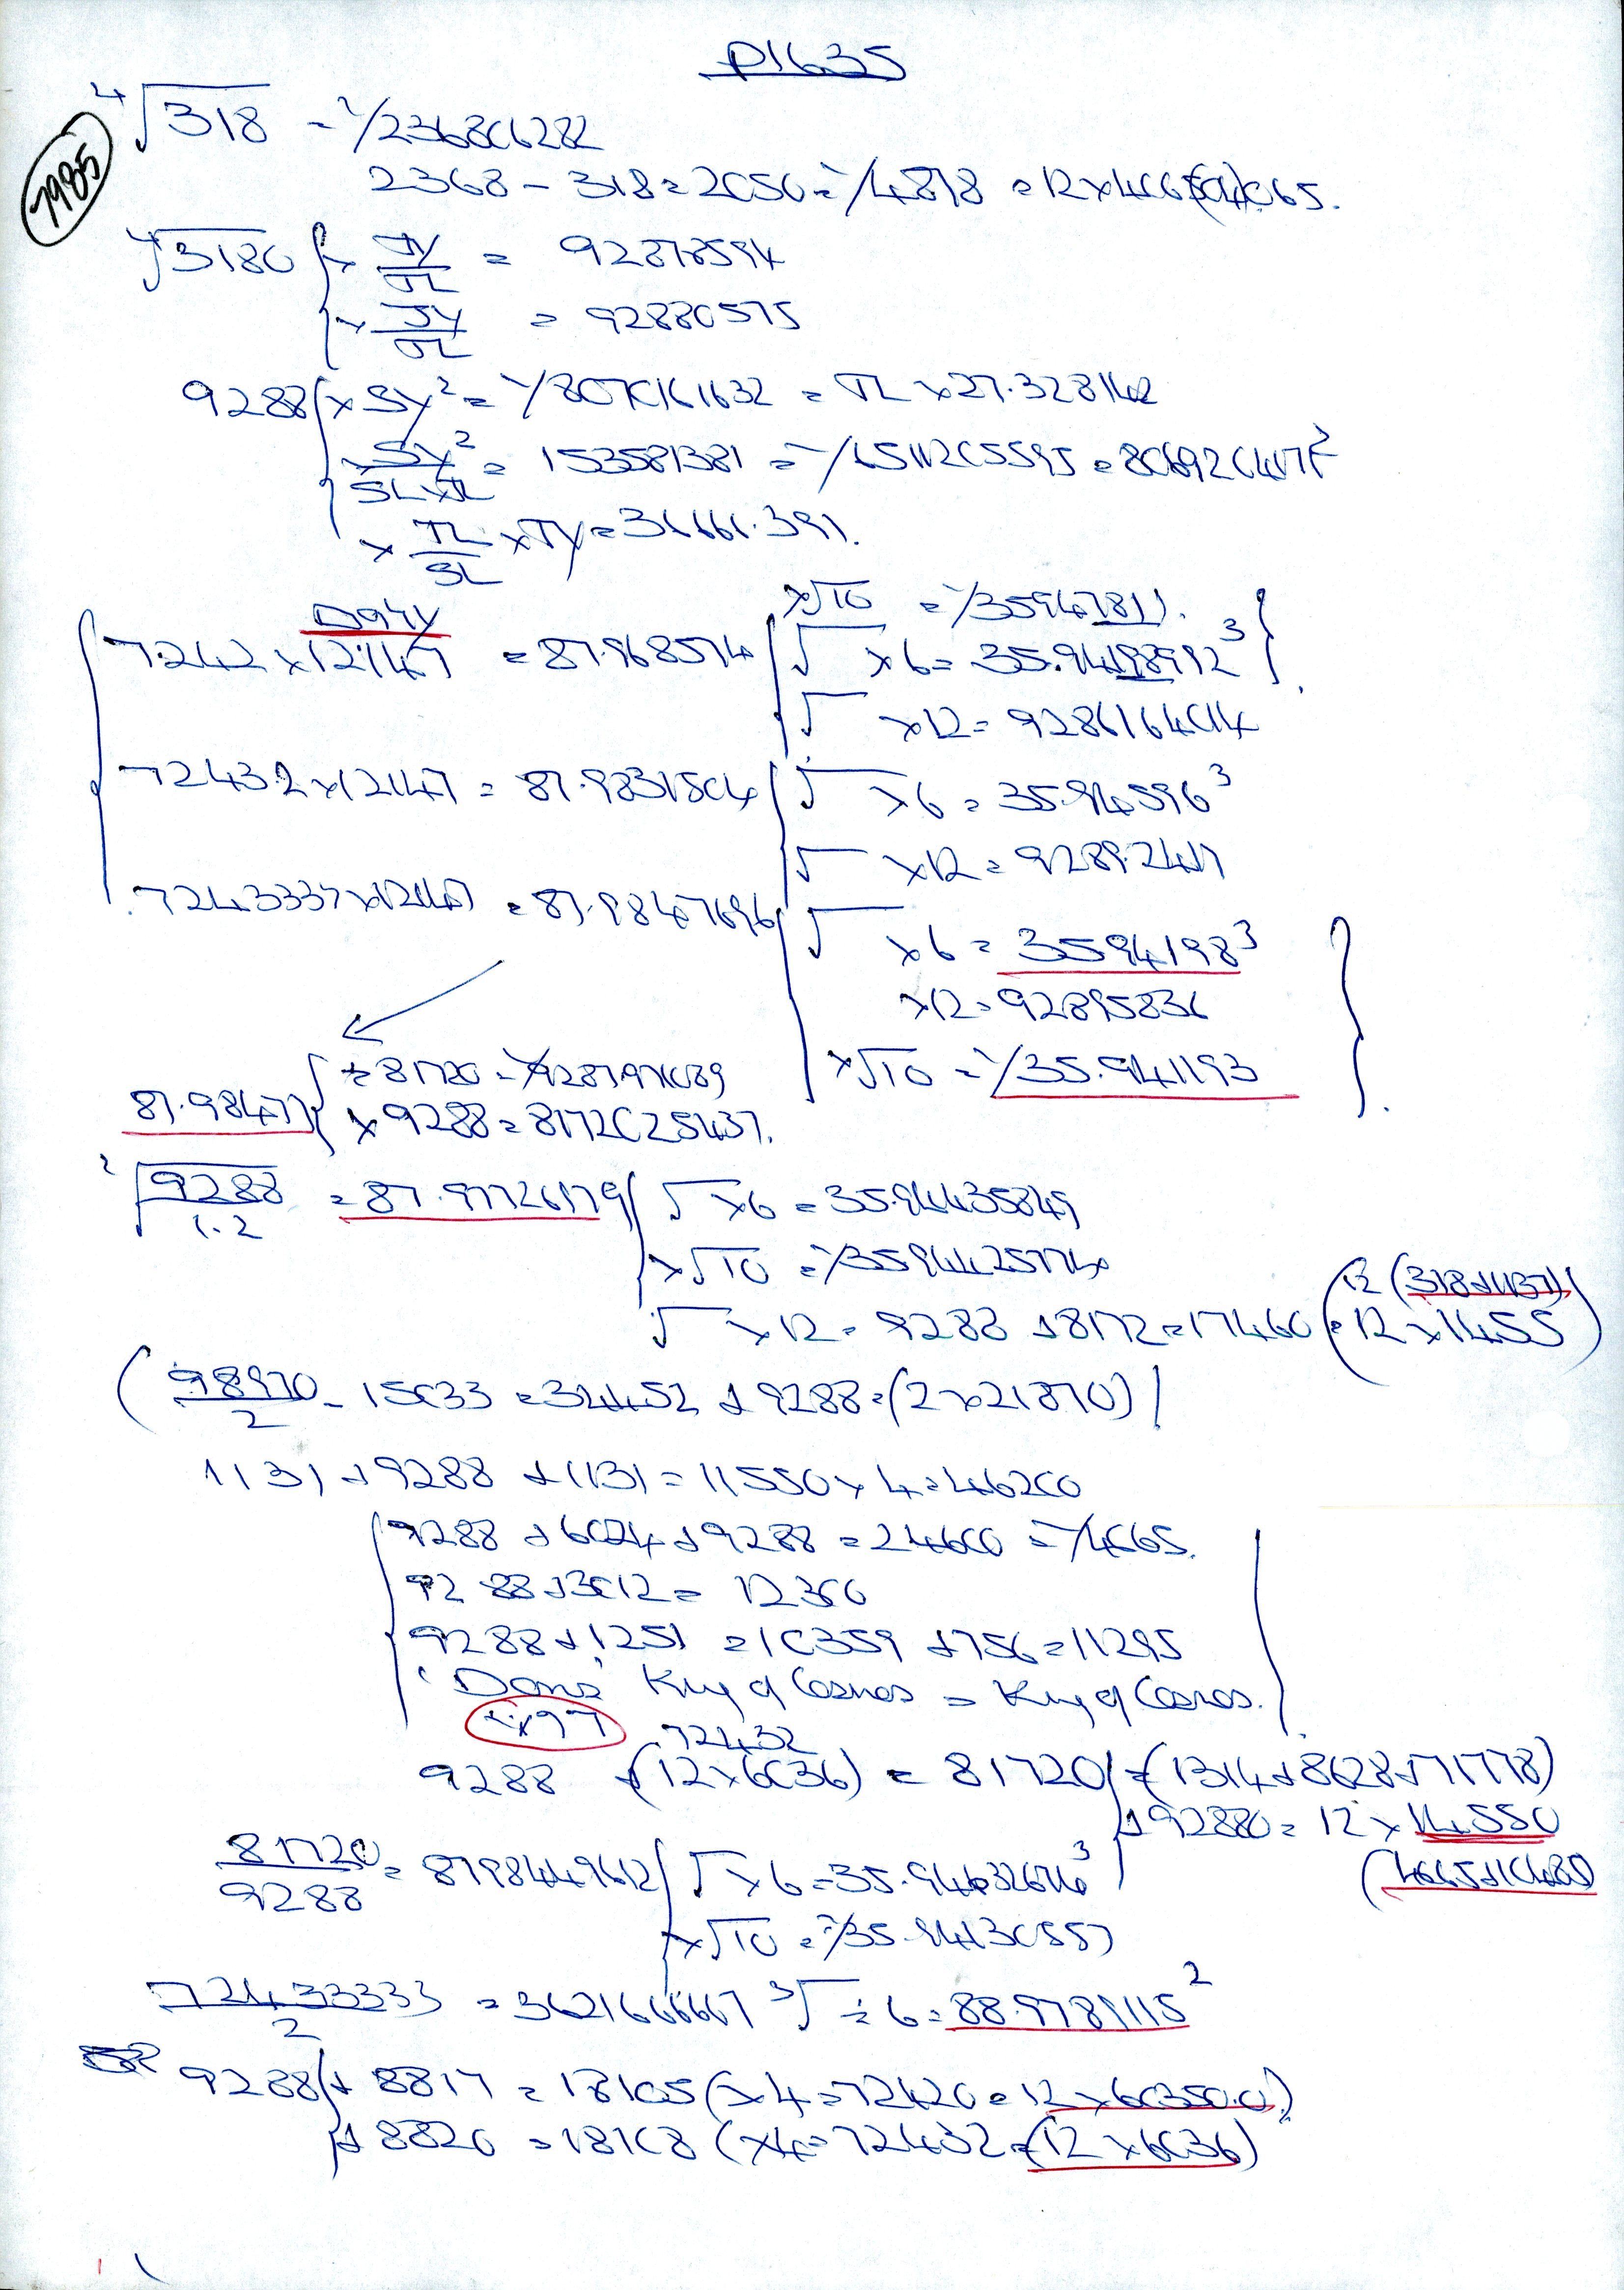 P1635
7985
4√318 = 1/236806282
2368 - 318 = 2050 = 1/4878 = 12 × 4065 (04)065.
4√3180 { × JY/JL = 92878594
× SY/JL = 92880575
9288 { × SY² = 1/8070161632 = JL × 27.328142
SY²/SL×JL = 153581381 = 1/6511205595
× JL/SL × JY = 36661.391.
D94y
7.242 × 12.147 = 87.968574 { ×√10 = 1/35947811.
√ × 6 = 35.94198992³
√ × 12 = 9286164014
72432 × 12147 = 87.9831504 { √ × 6 = 35.94596³
√ × 12 = 9289.2417
7243333 × 12147 = 87.9847696 { √ × 6 = 3594198³
×12 = 92895836
×√10 = 1/35.941193
87.98477 { ÷ 81720 = 1/9287971089
× 9288 = 8172025437.
2√9288/1.2 = 87.97726179 { √ × 6 = 35.94435849
×√10 = 1/35944257740
√ × 12 = 9288 + 8172 = 17460 (= 12 × 1455)
12 (318+1137)
(98970/2 - 15033 = 34452 + 9288 = (2 × 21870)
1131 + 9288 + 1131 = 11550 × 4 = 46200
9288 + 6024 + 9288 = 24600 = 1/4065.
9288 + 3012 = 12300
9288 + 1251 = 10359 + 756 = 11295
'Dons' King of Cosmos = King of Cosmos.
4×97 72432
9288 + (12 × 6036) = 81720 { = (1314 + 8628 + 71778)
+ 92880 = 12 × 14550
(4065+10485)
81720/9288 = 8798449612 { √ × 6 = 35.94632676³
×√10 = 1/35.94130557
72433333/2 = 3621666667 3√ ÷ 6 = 88.9789115²
9288 { + 8817 = 18105 (×4 = 72420 = 12 × 60350.0)
+ 8820 = 18108 (×4 = 72432 = (12 × 6036)